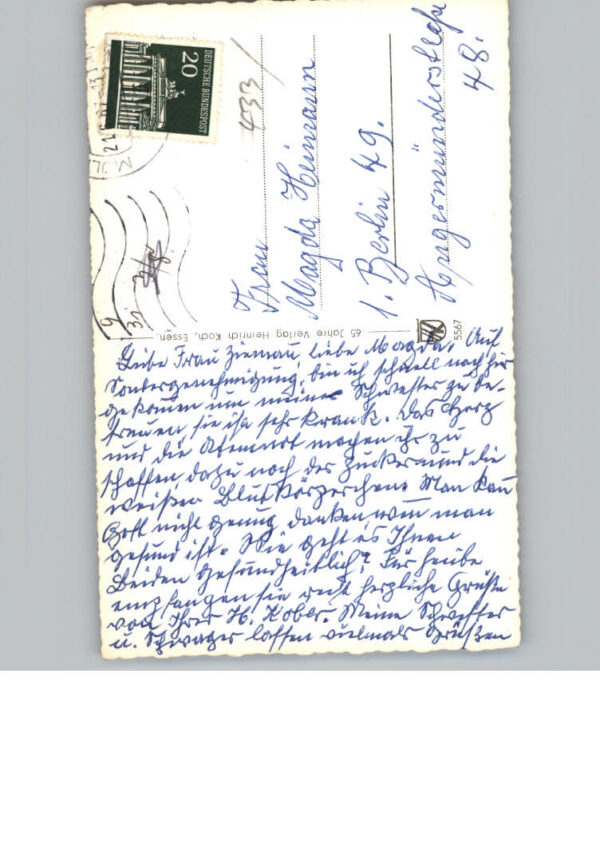 DEUTSCHE BUNDESPOST
20
433/
Frau
Magda Heimann
1. Berlin 49.
Angermünderstraße
48.
65 Jahre Verlag Heinrich Koch, Essen
5567
Liebe Frau Ziemau, liebe Magda. Auf
Sondergenehmigung, bin ich schnell nach hir
gekomen um meine Schwester zu be-
treuen sie ist sehr krank. Das Herz
und die Atemnot machen ihr zu
schaffen, dazu noch der Zucker und die
weißen Blutkörperchen. Man kan
Gott nicht genug danken wenn man
gesund ist. Wie geht es Ihnen
beiden gesundheitlich? Für heute
empfangen sie recht herzliche Grüße
von Ihrer H. Kober. Meine Schwester
u. Schwager lassen vielmals Grüßen